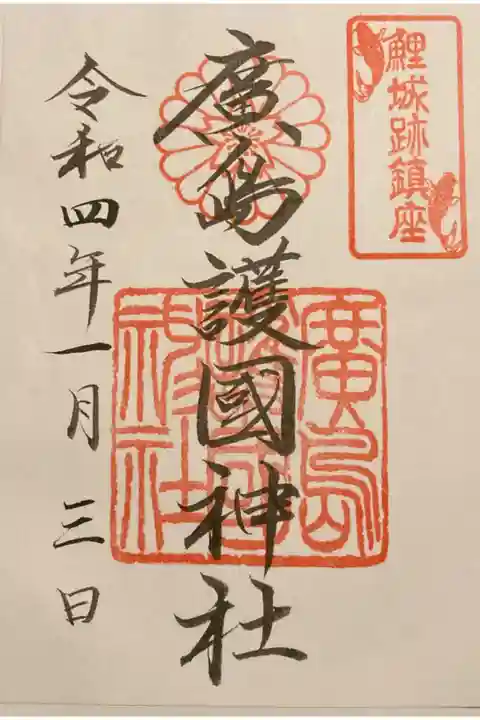 鯉城跡鎮座
廣島護國神社
廣島護國神社
令和四年一月三日